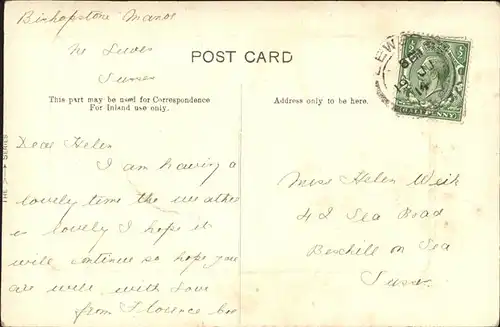 Bishopstone Manor
Nr Lewes
Sussex
POST CARD
This part may be used for Correspondence
For Inland use only.
Address only to be here.
Dear Helen
I am having a
lovely time the weather
is lovely I hope it
will continue so hope you
are well with love
from Florence
Miss Helen Weik
42 Sea Road
Bexhill on Sea
Sussx
LEWES
HALFPENNY
THE SERIES